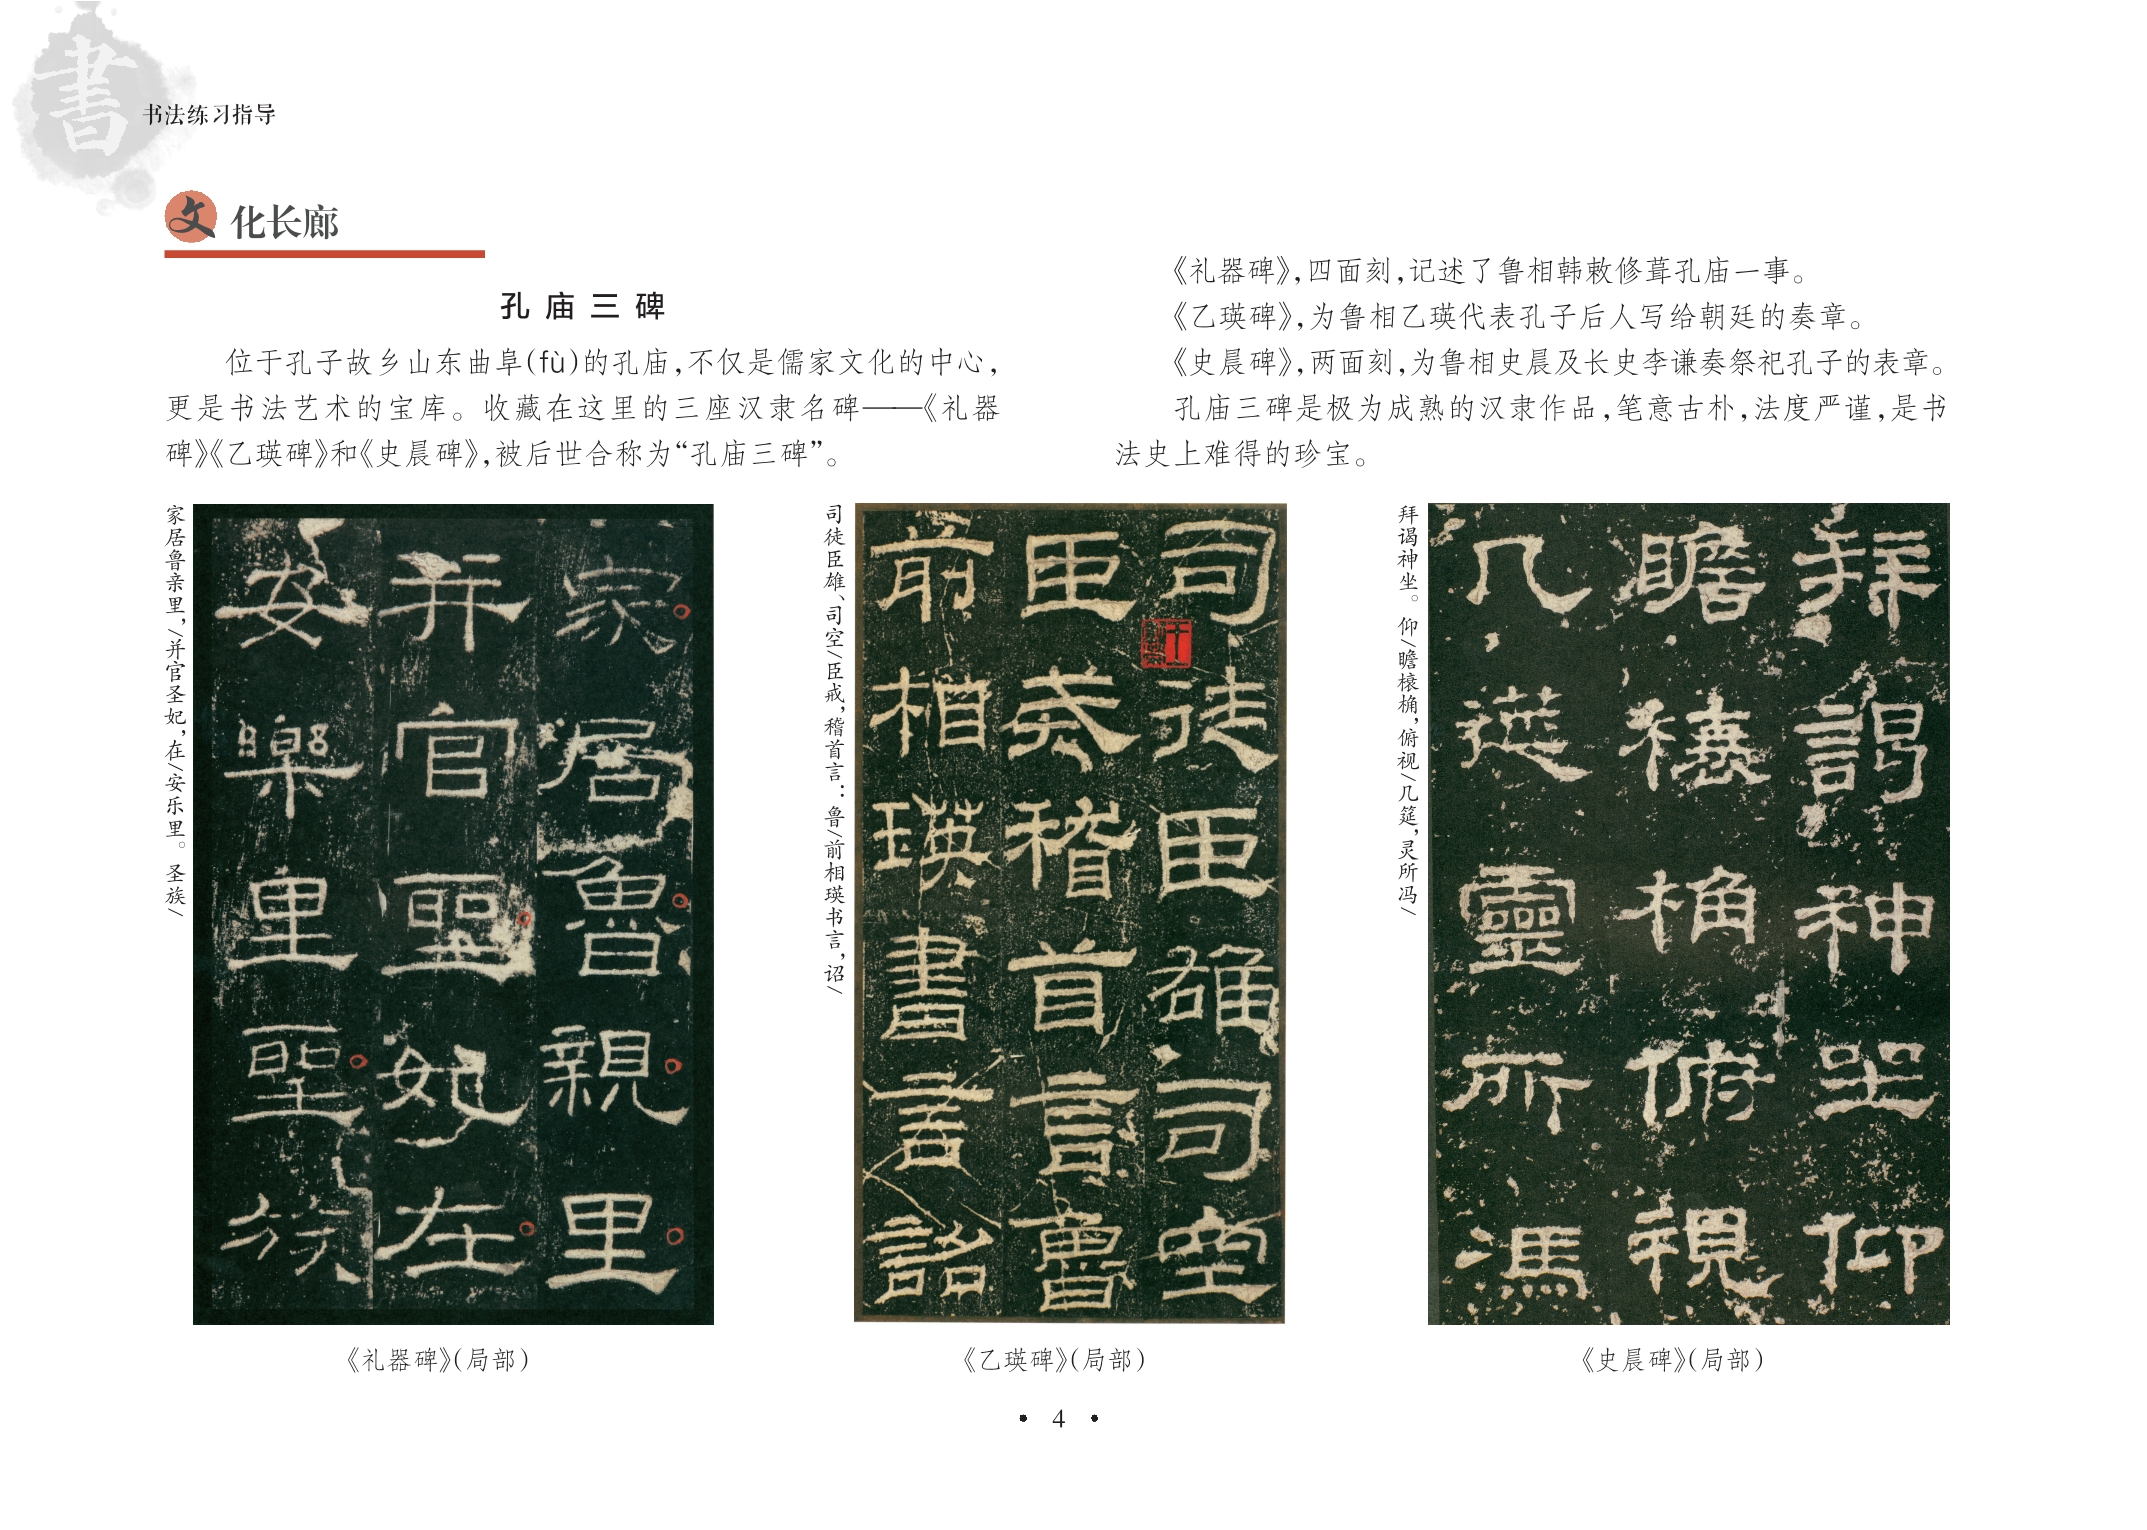 書
书法练习指导
文化长廊
孔庙三碑
位于孔子故乡山东曲阜(fù)的孔庙,不仅是儒家文化的中心,
更是书法艺术的宝库。收藏在这里的三座汉隶名碑——《礼器
碑》《乙瑛碑》和《史晨碑》,被后世合称为“孔庙三碑”。
《礼器碑》,四面刻,记述了鲁相韩敕修葺孔庙一事。
《乙瑛碑》,为鲁相乙瑛代表孔子后人写给朝廷的奏章。
《史晨碑》,两面刻,为鲁相史晨及长史李谦奏祭祀孔子的表章。
孔庙三碑是极为成熟的汉隶作品,笔意古朴,法度严谨,是书
法史上难得的珍宝。
家居鲁亲里,/并官圣妃,在/安乐里。圣族/
家居魯親里
并官聖妃在
安樂里聖族
《礼器碑》(局部)
司徒臣雄、司空/臣戒,稽首言：鲁/前相瑛书言,诏/
司徒臣雄司空
臣戒稽首言魯
前相瑛書言詔
《乙瑛碑》(局部)
拜谒神坐。仰/瞻榱桷,俯视/几筵,灵所冯/
拜謁神坐仰
瞻榱桷俯視
几筵靈所馮
《史晨碑》(局部)
• 4 •